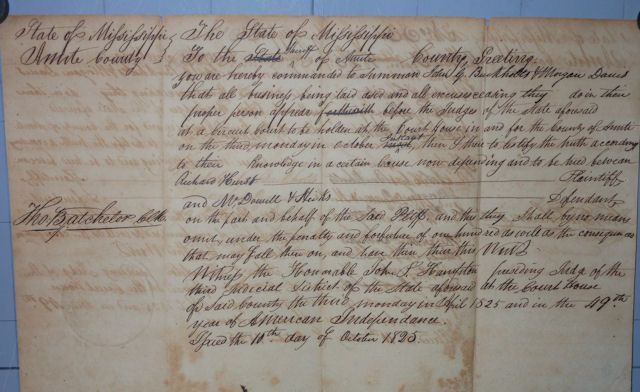 State of Mississippi
Amite County
The State of Mississippi
To the State Sheriff of Amite County Greeting
you are hereby commanded to Summon John G Buckholts & Morgan Davis
that all business being laid aside and all excuses ceasing they do in their
proper person appear forthwith before the Judges of the State aforesaid
at a Circuit court to be holden at the Court house in and for the County of Amite
on the third monday in October instant then & there to testify the truth according
to their knowledge in a certain Cause now depending and to be tried between
Richard Hurst Plaintiff
and McDowell & Hicks Defendants
Tho Batchelor Clk
on the part and behalf of the said Ptff, and this they Shall by no means
omit, under the penalty and forfeiture of one hundred as well as the consequences
that may fall there on, and have then there this Writ
Witness the Honorable John P Hampton presiding Judge of the
third Judicial District of the State aforesaid at the Court House
of said County the third monday in April 1825 and in the 49th
year of American Independance.
Issued the 10th day of October 1825.